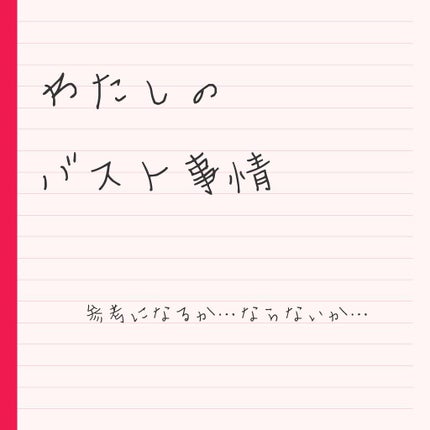 わたしの
バスト事情
参考になるか…ならないか…